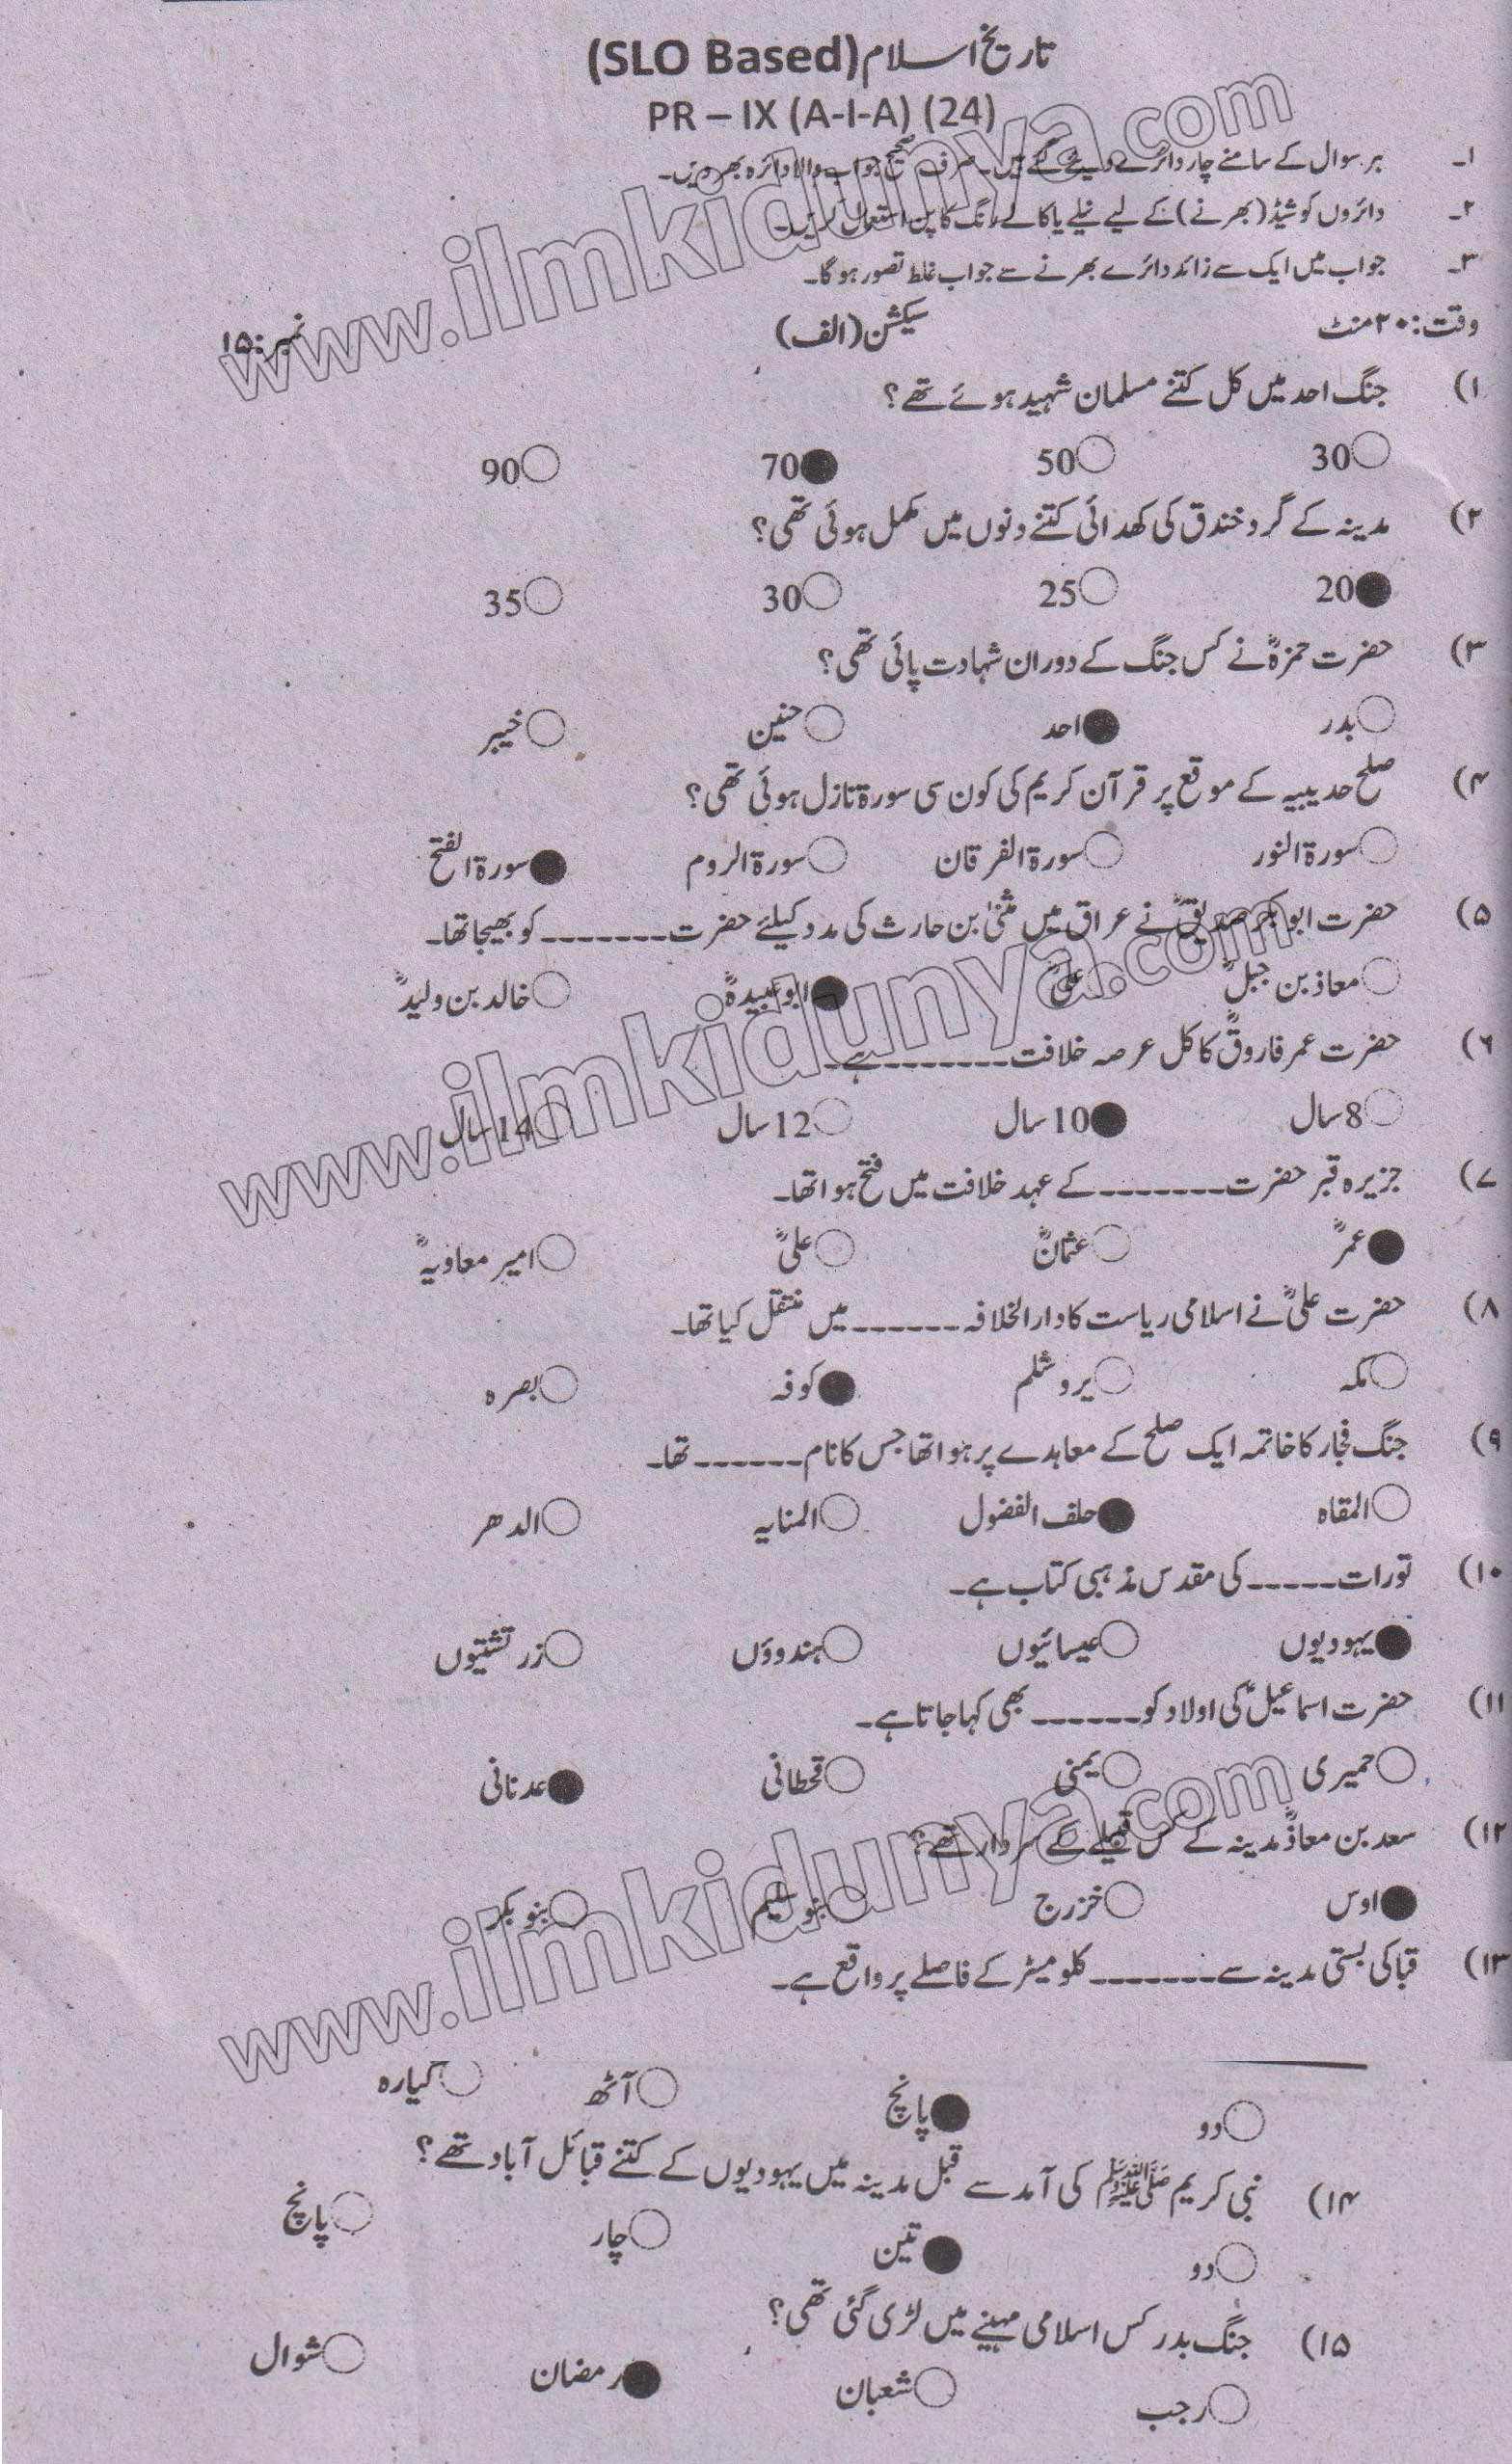 تاریخ اسلام (SLO Based)
PR – IX (A-I-A) (24)
۱۔ ہر سوال کے سامنے چار دائرے دیئے گئے ہیں۔ صرف صحیح جواب والا دائرہ بھر دیں۔
۲۔ دائروں کو شیڈ (بھرنے) کے لیے نیلے یا کالے رنگ کا پن استعمال کریں۔
۳۔ جواب میں ایک سے زائد دائرے بھرنے سے جواب غلط تصور ہوگا۔
وقت: ۲۰ منٹ سیکشن (الف) نمبر: ۱۵
۱) جنگ احد میں کل کتنے مسلمان شہید ہوئے تھے؟
30 50 70 90
۲) مدینہ کے گرد خندق کی کھدائی کتنے دنوں میں مکمل ہوئی تھی؟
20 25 30 35
۳) حضرت حمزہؓ نے کس جنگ کے دوران شہادت پائی تھی؟
بدر احد حنین خیبر
۴) صلح حدیبیہ کے موقع پر قرآن کریم کی کون سی سورۃ نازل ہوئی تھی؟
سورۃ النور سورۃ الفرقان سورۃ الروم سورۃ الفتح
۵) حضرت ابو بکر صدیقؓ نے عراق میں مثنیٰ بن حارث کی مدد کیلئے حضرت ------- کو بھیجا تھا۔
معاذ بن جبلؓ علیؓ ابو عبیدہؓ خالد بن ولیدؓ
۶) حضرت عمر فاروقؓ کا کل عرصہ خلافت ------- ہے۔
8 سال 10 سال 12 سال 14 سال
۷) جزیرہ قبر حضرت ------- کے عہد خلافت میں فتح ہوا تھا۔
عمرؓ عثمانؓ علیؓ امیر معاویہؓ
۸) حضرت علیؓ نے اسلامی ریاست کا دارالخلافہ ------ میں منتقل کیا تھا۔
مکہ یروشلم کوفہ بصرہ
۹) جنگ فجار کا خاتمہ ایک صلح کے معاہدے پر ہوا تھا جس کا نام ------ تھا۔
المقاہ حلف الفضول المنایہ الدھر
۱۰) تورات ----- کی مقدس مذہبی کتاب ہے۔
یہودیوں عیسائیوں ہندوؤں زرتشتیوں
۱۱) حضرت اسماعیلؑ کی اولاد کو ------ بھی کہا جاتا ہے۔
حمیری یمنی قحطانی عدنانی
۱۲) سعد بن معاذؓ مدینہ کے کس قبیلے کے سردار تھے؟
اوس خزرج بنو سلیم بنو بکر
۱۳) قبا کی بستی مدینہ سے ------- کلو میٹر کے فاصلے پر واقع ہے۔
دو پانچ آٹھ گیارہ
۱۴) نبی کریم ﷺ کی آمد سے قبل مدینہ میں یہودیوں کے کتنے قبائل آباد تھے؟
دو تین چار پانچ
۱۵) جنگ بدر کس اسلامی مہینے میں لڑی گئی تھی؟
رجب شعبان رمضان شوال
www.ilmkidunya.com
www.ilmkidunya.com
www.ilmkidunya.com